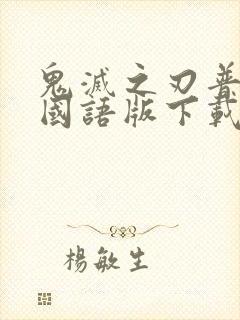 鬼滅之刃普
國語版下載
楊敏生